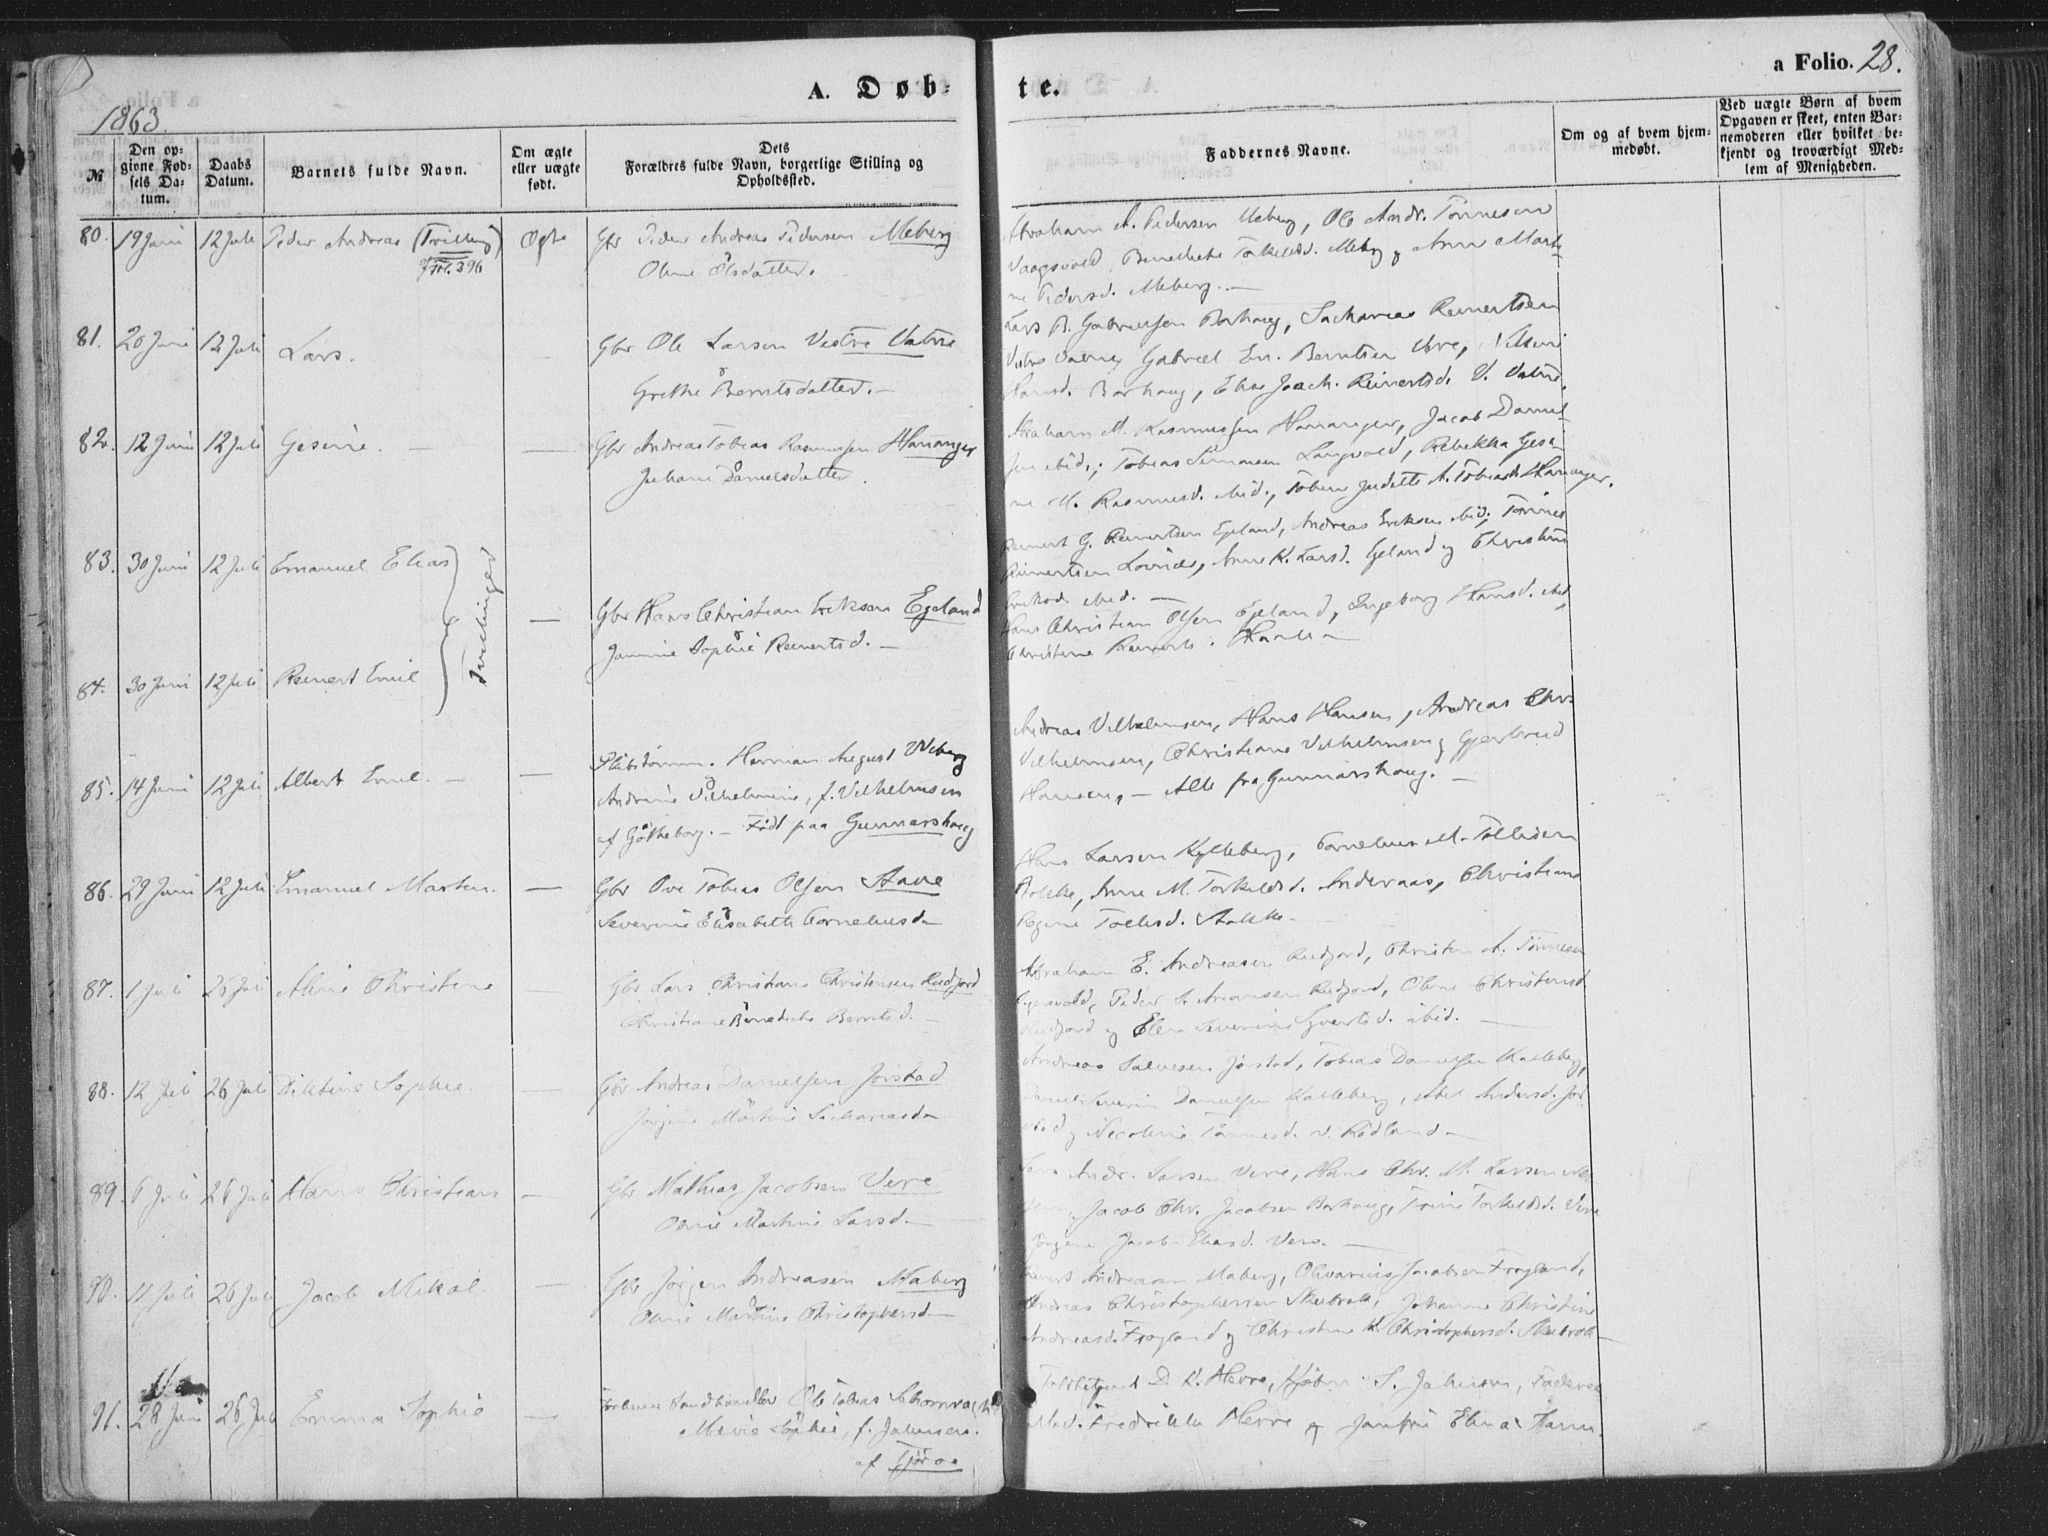 A. Døb-
te.
a Folio. 28.
1863.
№
Den op-
givne Fød-
sels Da-
tum.
Daabs
Datum.
Barnets fulde Navn.
Om ægte
eller uægte
født.
Dets
Forældres fulde Navn, borgerlige Stilling og
Opholdssted.
Faddernes Navne.
Om og af hvem hjem-
medøbt.
Ved uægte Børn af hvem
Opgaven er skeet, enten Bar-
nemoderen eller hvilket be-
kjendt og troværdigt Med-
lem af Menigheden.
80. 19 Juni 12 Juli Peder Andreas (Tvilling) Ægte Gbr Peder Andreas Pedersen Meberg
Fol. 296
Oline Olsdatter.
Abraham A. Pedersen Meberg, Ole Andr. Tönnesen
Vaagsvold, Benedicte Torkelsd. Meberg og Anne Marti-
ne Pedersd. Meberg. —
81. 20 Juni 12 Juli Lars. Gbr Ole Larsen Vestre Vatne
Grethe Berntsdatter. —
Lars B. Gabrielsen Borhaug, Sacharias Reinertsen
Vestre Vatne, Gabriel En. Berntsen
Hansd. Borhaug, Elise Joach. Reinertsd. V. Vatne.
82. 12 Juni 12 Juli Gesine. — — Gbr Andreas Tobias Rasmussen Hananger
Juliane Danielsdatter.
Abraham M. Rasmussen Hananger, Jacob Daniel-
sen ibid.; Tobias Simonsen Langvold, Rebekka Gesi-
ne M. Rasmusd. ibid., Judithe A. Tobiasd. Hananger.
83. 30 Juni 12 Juli Emanuel Elias
Tvillinger
— Gbr Hans Christian Eriksen Egeland
Jannine Sophie Reinertsd. —
Reinert G. Reinertsen Egeland, Andreas Eriksen ibid, Tönnes
Reinertsen Anne K. Larsd. Egeland og Christine
Eriksd. ibid. —
Hans Christian Olsen Egeland, Ingeborg Hansd. ibid,
Christine Reinerts.
84. 30 Juni 12 Juli Reinert Emil
85. 14 Juni 12 Juli Albert Emil. — — Skibstömm. Herman August Wiberg
Andrine Vilhelmine, f. Vilhelmsen
af Götheborg. — Født paa Gunnarshaug
Andreas Vilhelmsen, Hans Hansen, Andreas Chr.
Vilhelmsen, Christiane Vilhelmsen og Gjertrud
Hansen, — Alle fra Gunnarshaug. —
86. 29 Juni 12 Juli Emanuel Marten. — Gbr Ove Tobias Olsen Stave
Severine Elisabeth Corneliusd.
Hans Larsen Kjelleberg, Cornelius M. Tollisen
Stokke, Anne M. Torkildsd. Andevaas, Christiane
Regine Tollisd. Stokke.
87. 1 Juli 26 Juli Aline Christine — Gbr Lars Christians Christensen Rudjord
Christiane Benedicte Berntsd. —
Abraham E. Andreasen Rudjord, Christen A. Tönnesen
Peder A. Rudjord, Oline Christensd
Rudjord og Elen Severine Syvertsd. ibid. —
88. 12 Juli 26 Juli Diktine Sophie — Gbr Andreas Danielsen Jørstad
Jörgine Martine Sachariasd.
Andreas Salvesen Jørstad, Tobias Danielsen Kalleberg,
Daniel Severin Danielsen Kalleberg, Abel Andersd. Jør-
stad og Nicoline Tönnesd. N. Rödland —
89. 6 Juli 26 Juli Hans Christian — Gbr Mathias Jacobsen Vere
Oline Martine Larsd. —
Lars Andr. Larsen Vere, Hans Chr. M. Larsen
Jacob Chr. Jacobsen Borhaug, Trine Torkelsd. Vere
Jörgine Jacobe Eliasd. Vere. —
90. 11 Juli 26 Juli Jacob Mikal — Gbr Jørgen Andreasen Maberg
Oline Martine Christophersd.
Andreasen Maberg, Olivarius Jacobsen Frøyland,
Andreas Christophersen Skeibrok, Johanne Christine
Andreasd. Frøyland og Christine K. Christophersd. Skeibrok —
91. 28 Juni 26 Juli Emma Sophie — Forhenv. Landhandler Ole Tobias
Sophie, f. Jahnsen.
af
D. K. Herre, S. Jahnsen,
Mad. Fredrikke Herre og Jomfru Elena